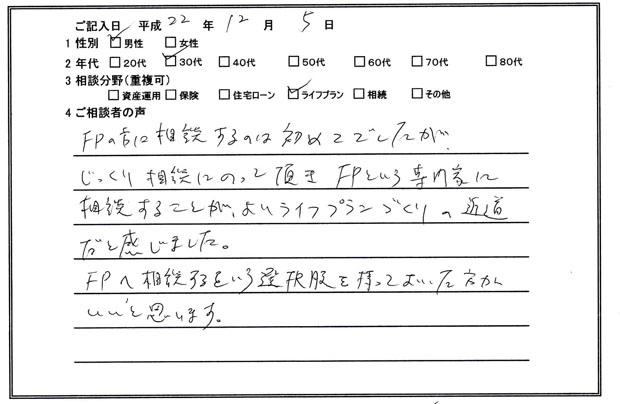 ご記入日 平成 22 年 12 月 5 日
1 性別 ☑男性 □女性
2 年代 □20代 ☑30代 □40代 □50代 □60代 □70代 □80代
3 相談分野(重複可)
□資産運用 □保険 □住宅ローン ☑ライフプラン □相続 □その他
4 ご相談者の声
FPの方に相談するのは初めてでしたが、
じっくり相談にのって頂き FPという専門家に
相談することが、よいライフプランづくりの近道
だと感じました。
FPへ相談するという選択肢を持っておいた方が
いいと思います。